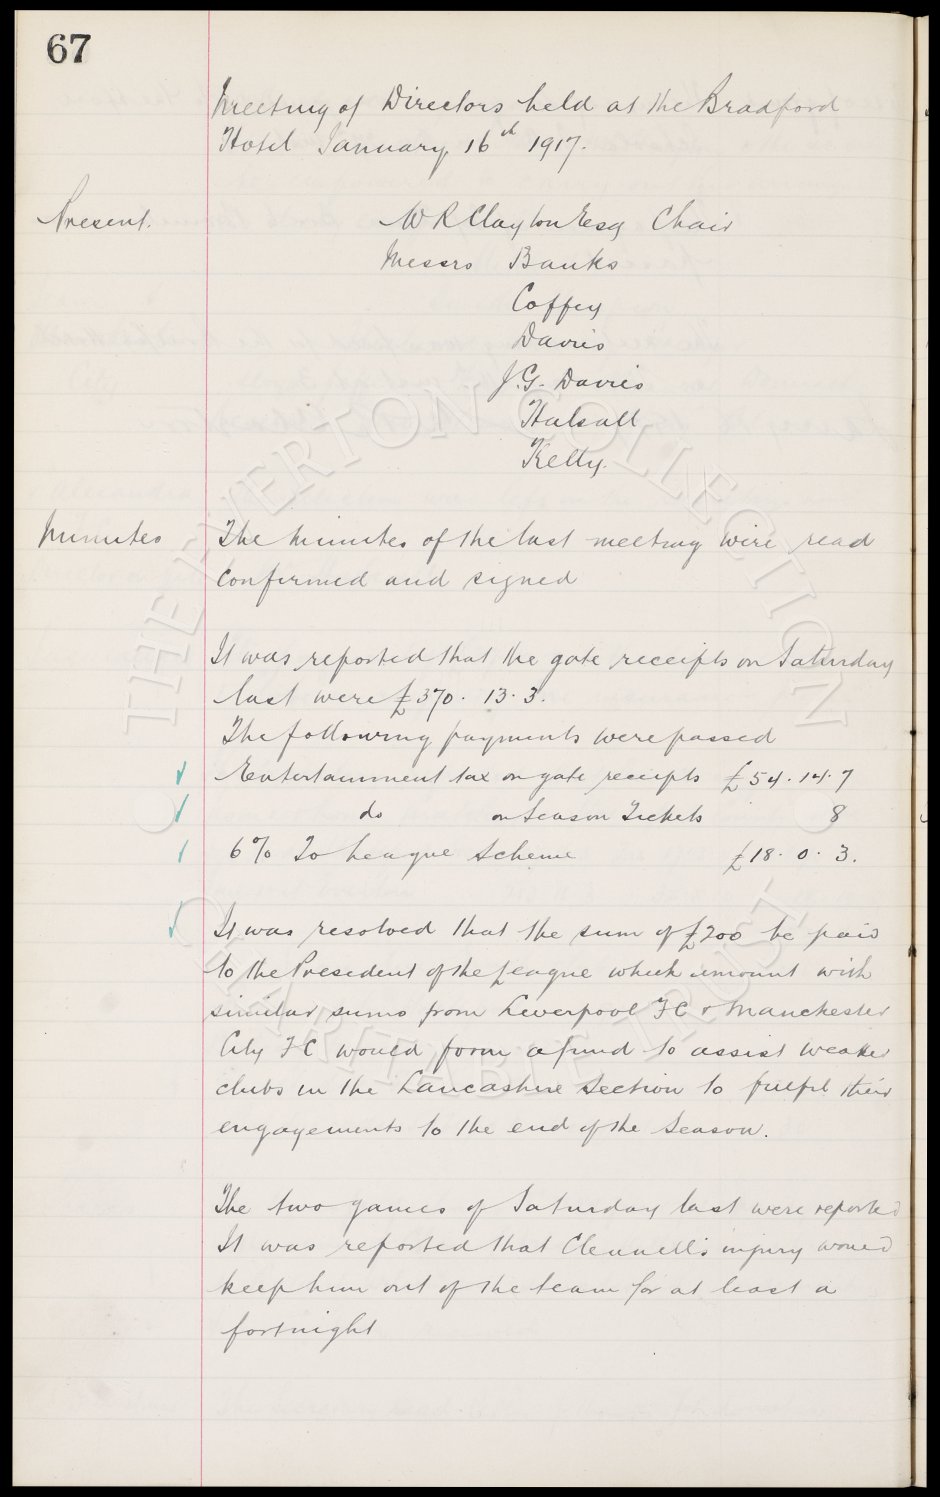 67
Meeting of Directors held at the Bradford
Hotel January 16th 1917.
Present. W R Clayton Esq Chair
Messrs Banks
Coffey
Davies
J.G. Davies
Halsall
Kelly.
Minutes The Minutes of the last meeting were read
confirmed and signed
It was reported that the gate receipts on Saturday
last were £370. 13. 3.
The following payments were passed
Entertainment tax on gate receipts £54. 14. 7
do on Season Tickets 8
6% To League Scheme £18. 0. 3.
It was resolved that the sum of £200 be paid
to the President of the League which amount with
similar sums from Liverpool FC & Manchester
City FC would form a fund to assist weaker
clubs in the Lancashire Section to fulfil their
engagements to the end of the Season.
The two games of Saturday last were reported
It was reported that Clennell's injury would
keep him out of the team for at least a
fortnight
THE EVERTON COLLECTION
CHARITABLE TRUST